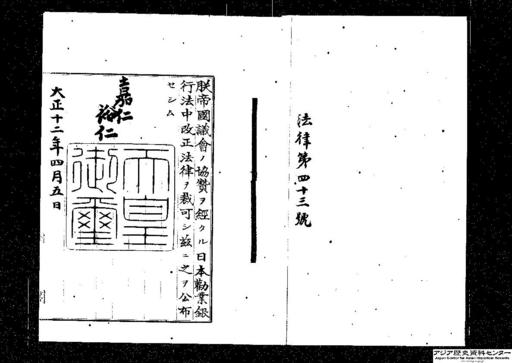 法律第四十三號
朕帝國議會ノ協贊ヲ經タル日本勸業銀
行法中改正法律ヲ裁可シ玆ニ之ヲ公布
セシム
嘉仁
裕仁
天皇
御璽
大正十二年四月五日
アジア歴史資料センター
Japan Center for Asian Historical Records